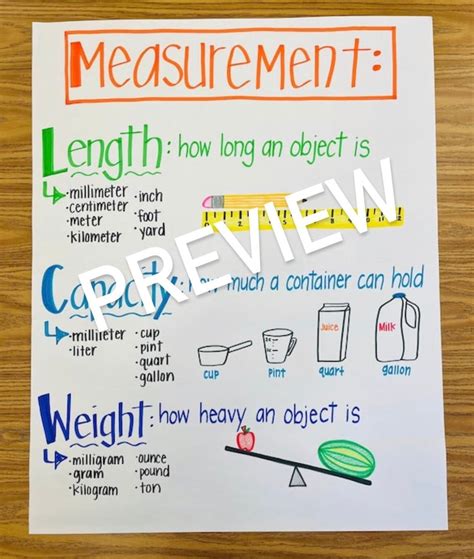 Measurement:
Length: how long an object is
·millimeter
·centimeter
·meter
·kilometer
·inch
·foot
·yard
PREVIEW
Capacity: how much a container can hold
·milliliter
·liter
·cup
·pint
·quart
·gallon
Juice
Milk
cup
pint
quart
gallon
Weight: how heavy an object is
·milligram
·gram
·kilogram
·ounce
·pound
·ton